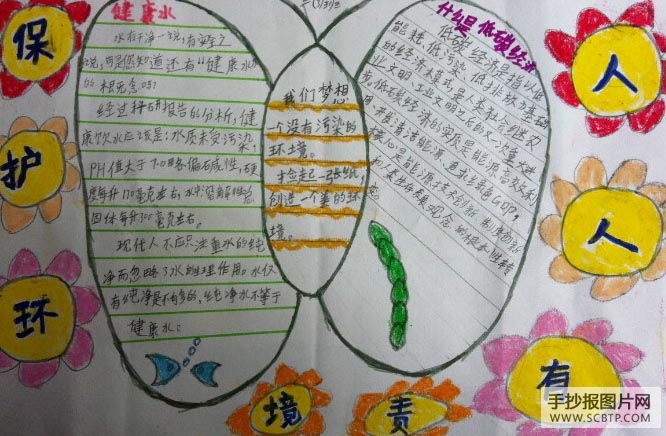 保
护
环
境
人
人
有
责
健康水
水有净一说,有污之
说,可是你知道还有“健康水”
的概念吗?
经过科研报告的分析,健
康饮水应该是:水质未受污染,
PH值大于7.0略偏碱性,硬
度每升170毫克左右,水中溶解性总
固体每升300毫克左右。
现代人不应只注重水的纯
净而忽略了水的生理作用。水仅
有纯净是不够的,纯净水不等于
健康水。
我们梦想
一个没有污染的
环境。
捡起一张纸,
创造一个美的环
境。
什么是低碳经济
低碳经济是指以低
能耗、低污染、低排放为基础
的经济模式,是人类社会继农
业文明、工业文明之后的又一次重大进
步。低碳经济的实质是能源高效利
用、开发清洁能源、追求绿色GDP,
核心是能源技术创新、制度创新
和人类生存发展观念的根本性转
手抄报图片网
WWW.SCBTP.COM